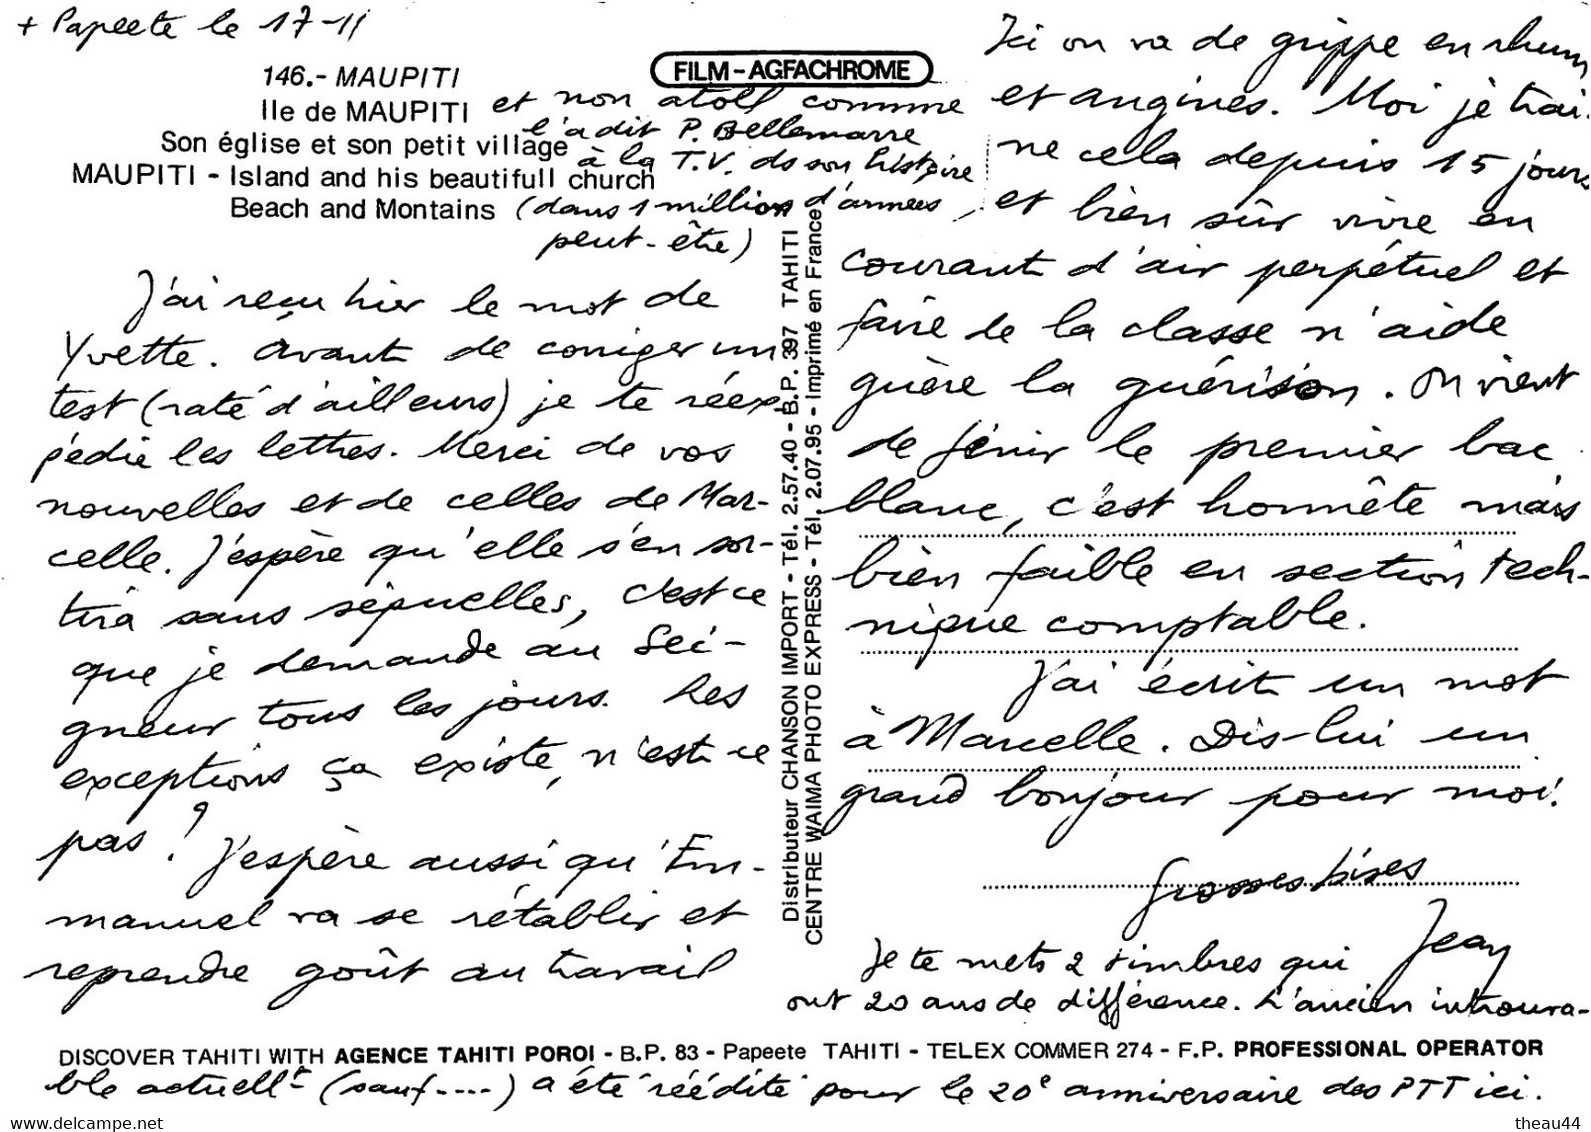 + Papeete le 17-11
FILM-AGFACHROME
146.- MAUPITI
Ile de MAUPITI et non atoll comme
l'a dit P. Bellemarre
Son église et son petit village à la T.V. ds son histoire
MAUPITI - Island and his beautifull church
Beach and Montains (dans 1 million d'années,
peut-être)
J'ai reçu hier le mot de
Yvette. Avant de corriger un
test (raté d'ailleurs) je te réex-
pédie les lettres. Merci de vos
nouvelles et de celles de Mar-
celle. J'espère qu'elle s'en sor-
tira sans séquelles, c'est ce
que je demande au Sei-
gneur tous les jours. Les
exceptions ça existe, n'est-ce
pas ? J'espère aussi qu'Em-
manuel va se rétablir et
reprendre goût au travail
Distributeur CHANSON IMPORT - Tél. 2.57.40 - B.P. 397 TAHITI
CENTRE WAIMA PHOTO EXPRESS - Tél. 2.07.95 - Imprimé en France
Ici on va de grippe en rhum
et angines. Moi je trai-
ne cela depuis 15 jours
et bien sûr vivre en
courant d'air perpétuel et
faire de la classe n'aide
guère la guérison. On vient
de finir le premier bac
blanc, c'est honnête mais
bien faible en section tech-
nique comptable.
J'ai écrit un mot
à Marcelle. Dis-lui un
grand bonjour pour moi.
Grosses bises
Jean
Je te mets 2 timbres qui
ont 20 ans de différence. L'ancien introuva-
DISCOVER TAHITI WITH AGENCE TAHITI POROI - B.P. 83 - Papeete TAHITI - TELEX COMMER 274 - F.P. PROFESSIONAL OPERATOR
ble actuellt (sauf....) a été réédité pour le 20e anniversaire des PTT ici.
www.delcampe.net
theau44